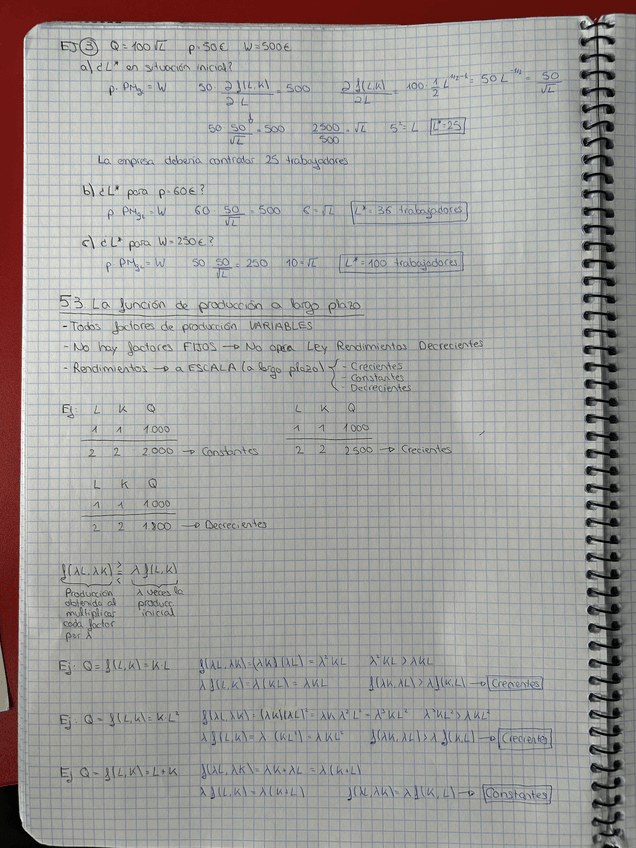 EJ ③ Q = 100√L p = 50€ W = 500€
a) ¿L* en situación inicial?
p · PMgL = W 50 · ∂f(L,K)/∂L = 500 ∂f(L,K)/∂L = 100 · 1/2 L^(1/2-1) = 50 L^(-1/2) = 50/√L
50 · 50/√L = 500 2500/500 = √L 5² = L L* = 25
La empresa debería contratar 25 trabajadores
b) ¿L* para p = 60€?
p PMgL = W 60 · 50/√L = 500 6 = √L L* = 36 trabajadores
c) ¿L* para W = 250€?
p PMgL = W 50 50/√L = 250 10 = √L L* = 100 trabajadores
5.3 La función de producción a largo plazo
- Todos factores de producción VARIABLES
- No hay factores FIJOS → No opera Ley Rendimientos Decrecientes
- Rendimientos → a ESCALA (a largo plazo) { - Crecientes
- Constantes
- Decrecientes
Ej: L K Q L K Q
1 1 1000 1 1 1000
2 2 2000 → Constantes 2 2 2500 → Crecientes
L K Q
1 1 1000
2 2 1800 → Decrecientes
f(λL, λK) ≷ λ f(L,K)
Producción λ veces la
obtenida al produc.
multiplicar inicial
cada factor
por λ
Ej: Q = f(L,K) = K·L f(λL, λK) = (λK)(λL) = λ²KL λ²KL > λKL
λ f(L,K) = λ(KL) = λKL f(λK, λL) > λ f(K,L) → Crecientes
Ej: Q = f(L,K) = K L² f(λL, λK) = (λK)(λL)² = λK λ²L² = λ³KL² λ³KL² > λKL²
λ f(L,K) = λ (KL²) = λKL² f(λK, λL) > λ f(K,L) → Crecientes
Ej Q = f(L,K) = L + K f(λL, λK) = λK + λL = λ(K+L)
λ f(L,K) = λ(K+L) f(λL, λK) = λ f(K,L) → Constantes